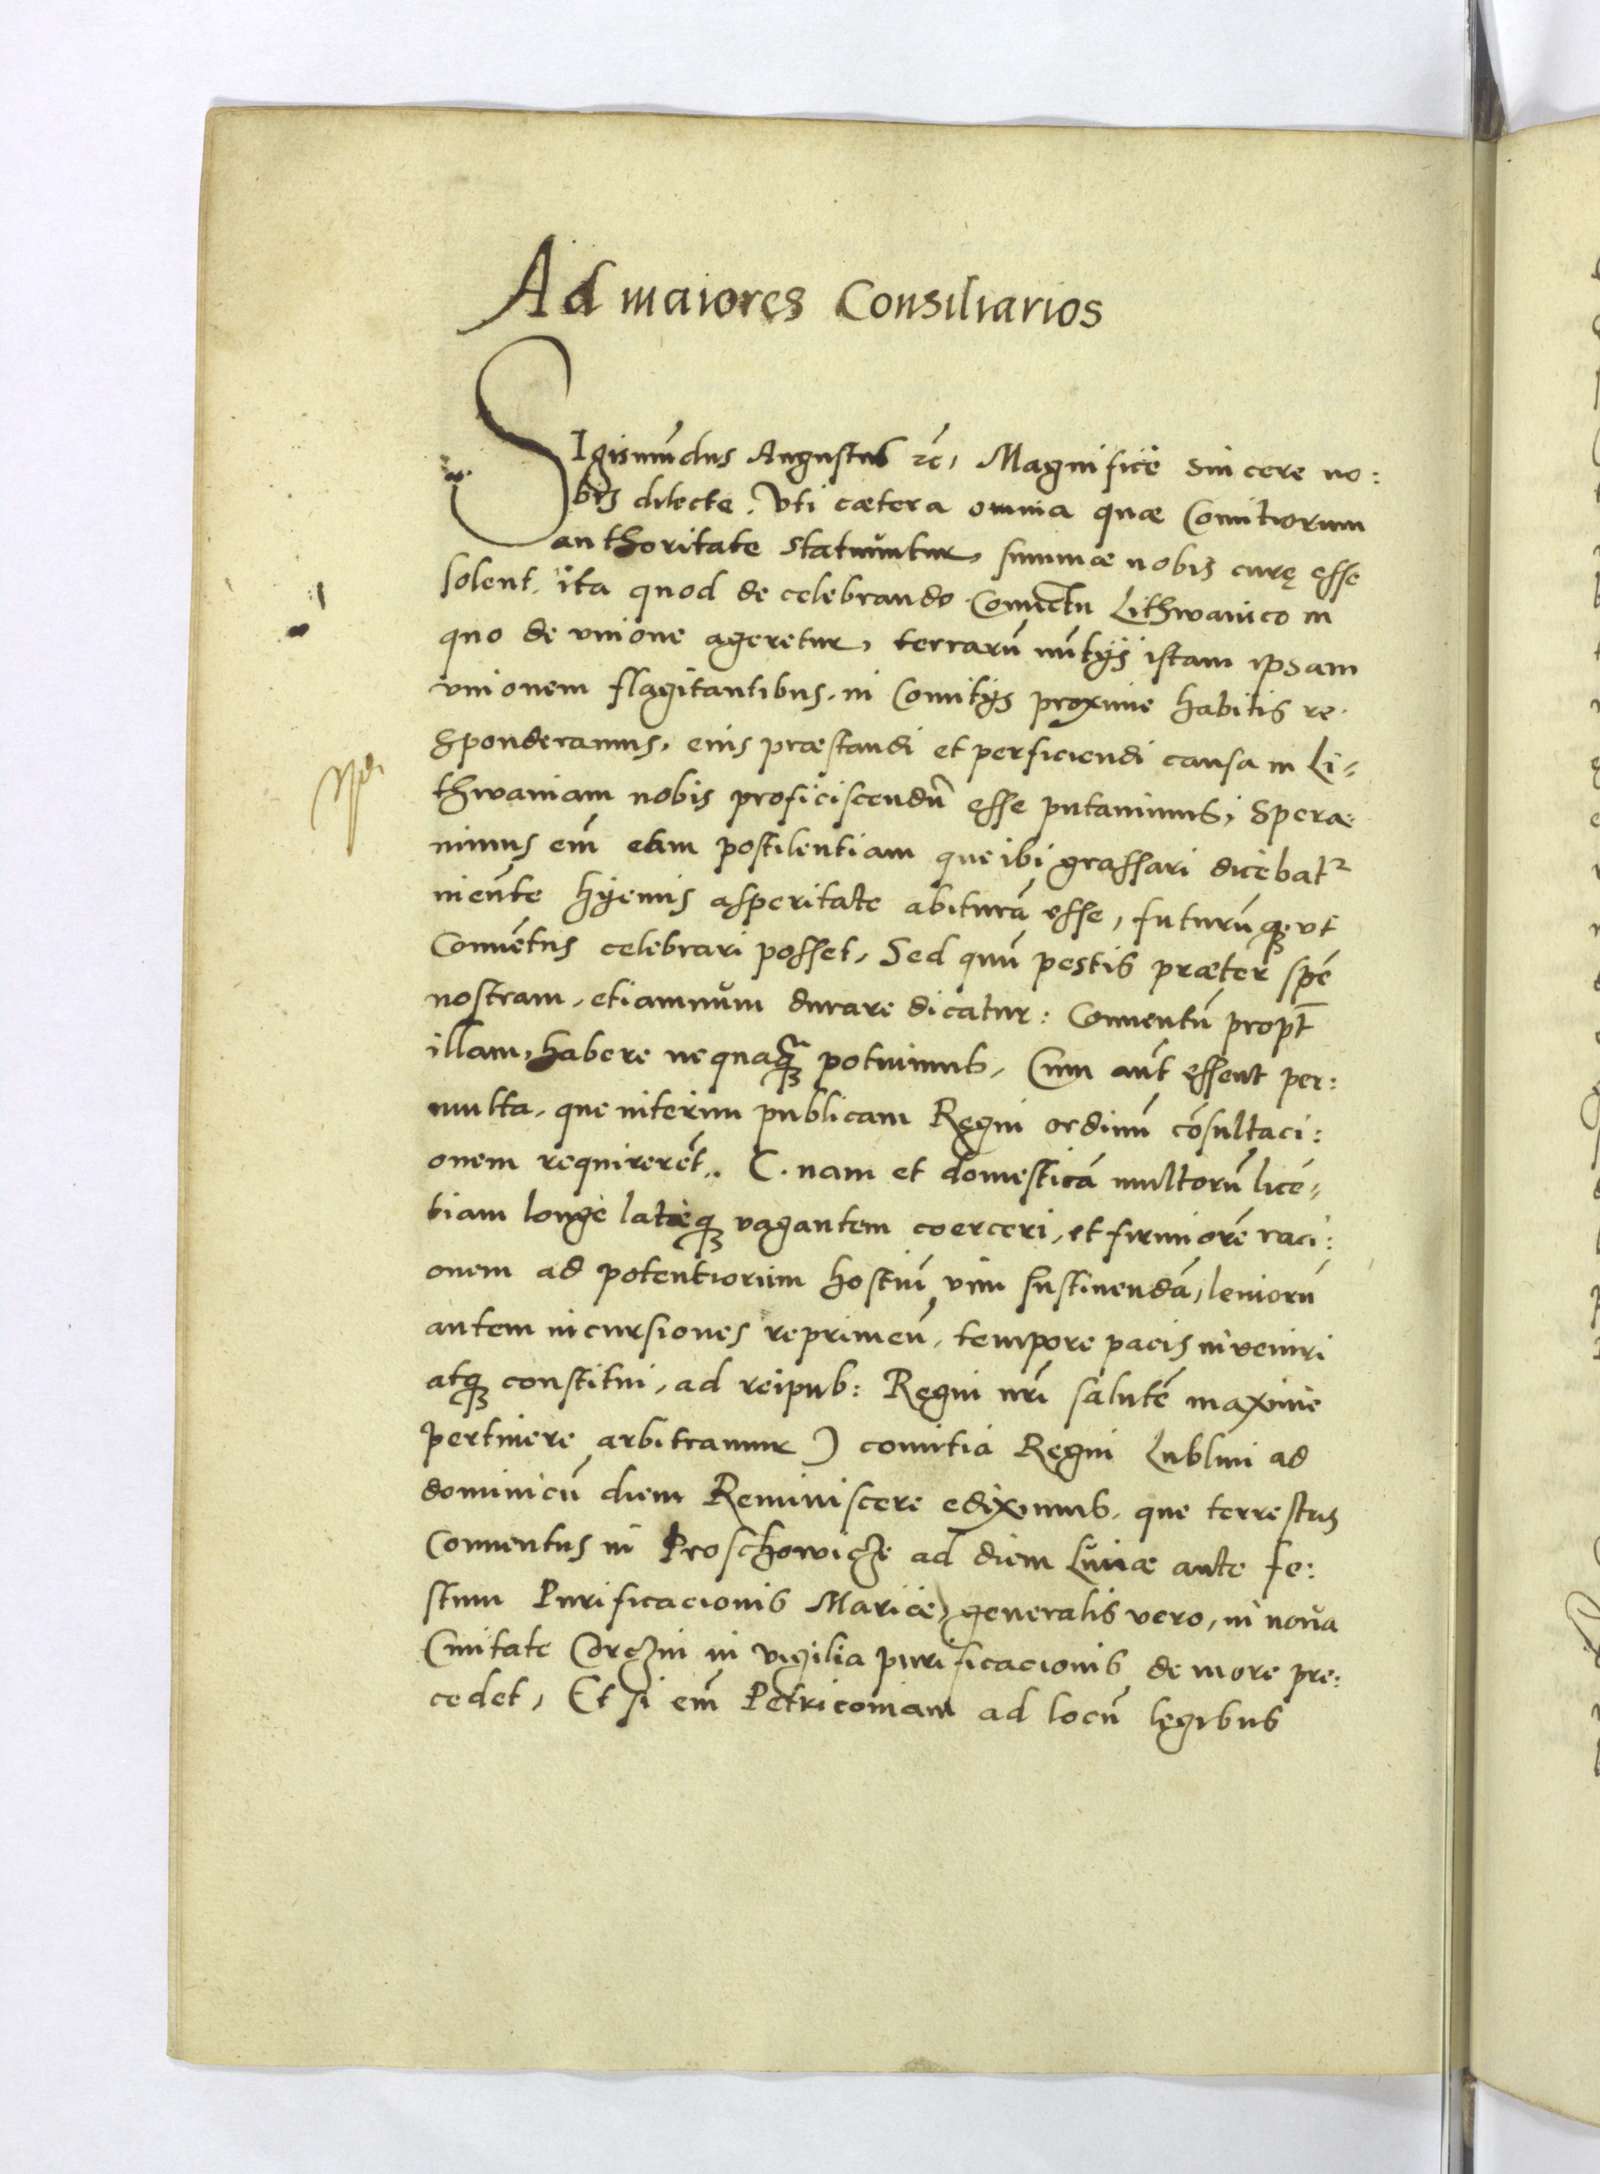 Ad maiores Consiliarios
SIgismūdus Augustus rc, Magnifice sincere no:
bis dilecte. Vti cætera omnia quæ Comitiorum
authoritate statuuntur, summæ nobis curę esse
solent, ita quod de celebrando Conuctu Lithwanico in
quo de vnione ageretur, terrarū nūtijs istam ipsam
vnionem flagitantibus, in Comitijs proxime habitis re
sponderamus, eius præstandi et perficiendi causa in Li-
thwaniam nobis proficiscendū esse putauimus, Spera
uimus em̄ eam pestilentiam que ibi grassari dicebatr
ineunte hyemis asperitate abiturā esse, futurūq; vt
Conuētus celebrari posset, Sed quū pestis præter spē
nostram, etiamnum durare dicatur: Conuentū propt
illam, habere nequaq̃ potuimus, Cum aūt essent per:
multa, que interim publicam Regni ordinū cōsultaci:
onem requirerēt. (. nam et domesticā multorū licē-
tiam longe lateq; vagantem coerceri, et firmiorē raci:
onem ad potentiorum hostiū vim sustinendā, leuiorū
autem incursiones reprimen̄, tempore pacis inveniri
atq; constitui, ad reipub: Regni nrī salutē maxime
pertinere arbitramur ) comitia Regni Lublini ad
dominicū diem Reminiscere ediximus, que terrestris
Conuentus in Proschowicze ad diem Lunæ ante fe:
stum Purificacionis Mariæ, generalis vero, in noua
Ciuitate Corczin in vigilia purificacionis de more pre:
cedet, Et si em̄ Petricouiam ad locū legibus